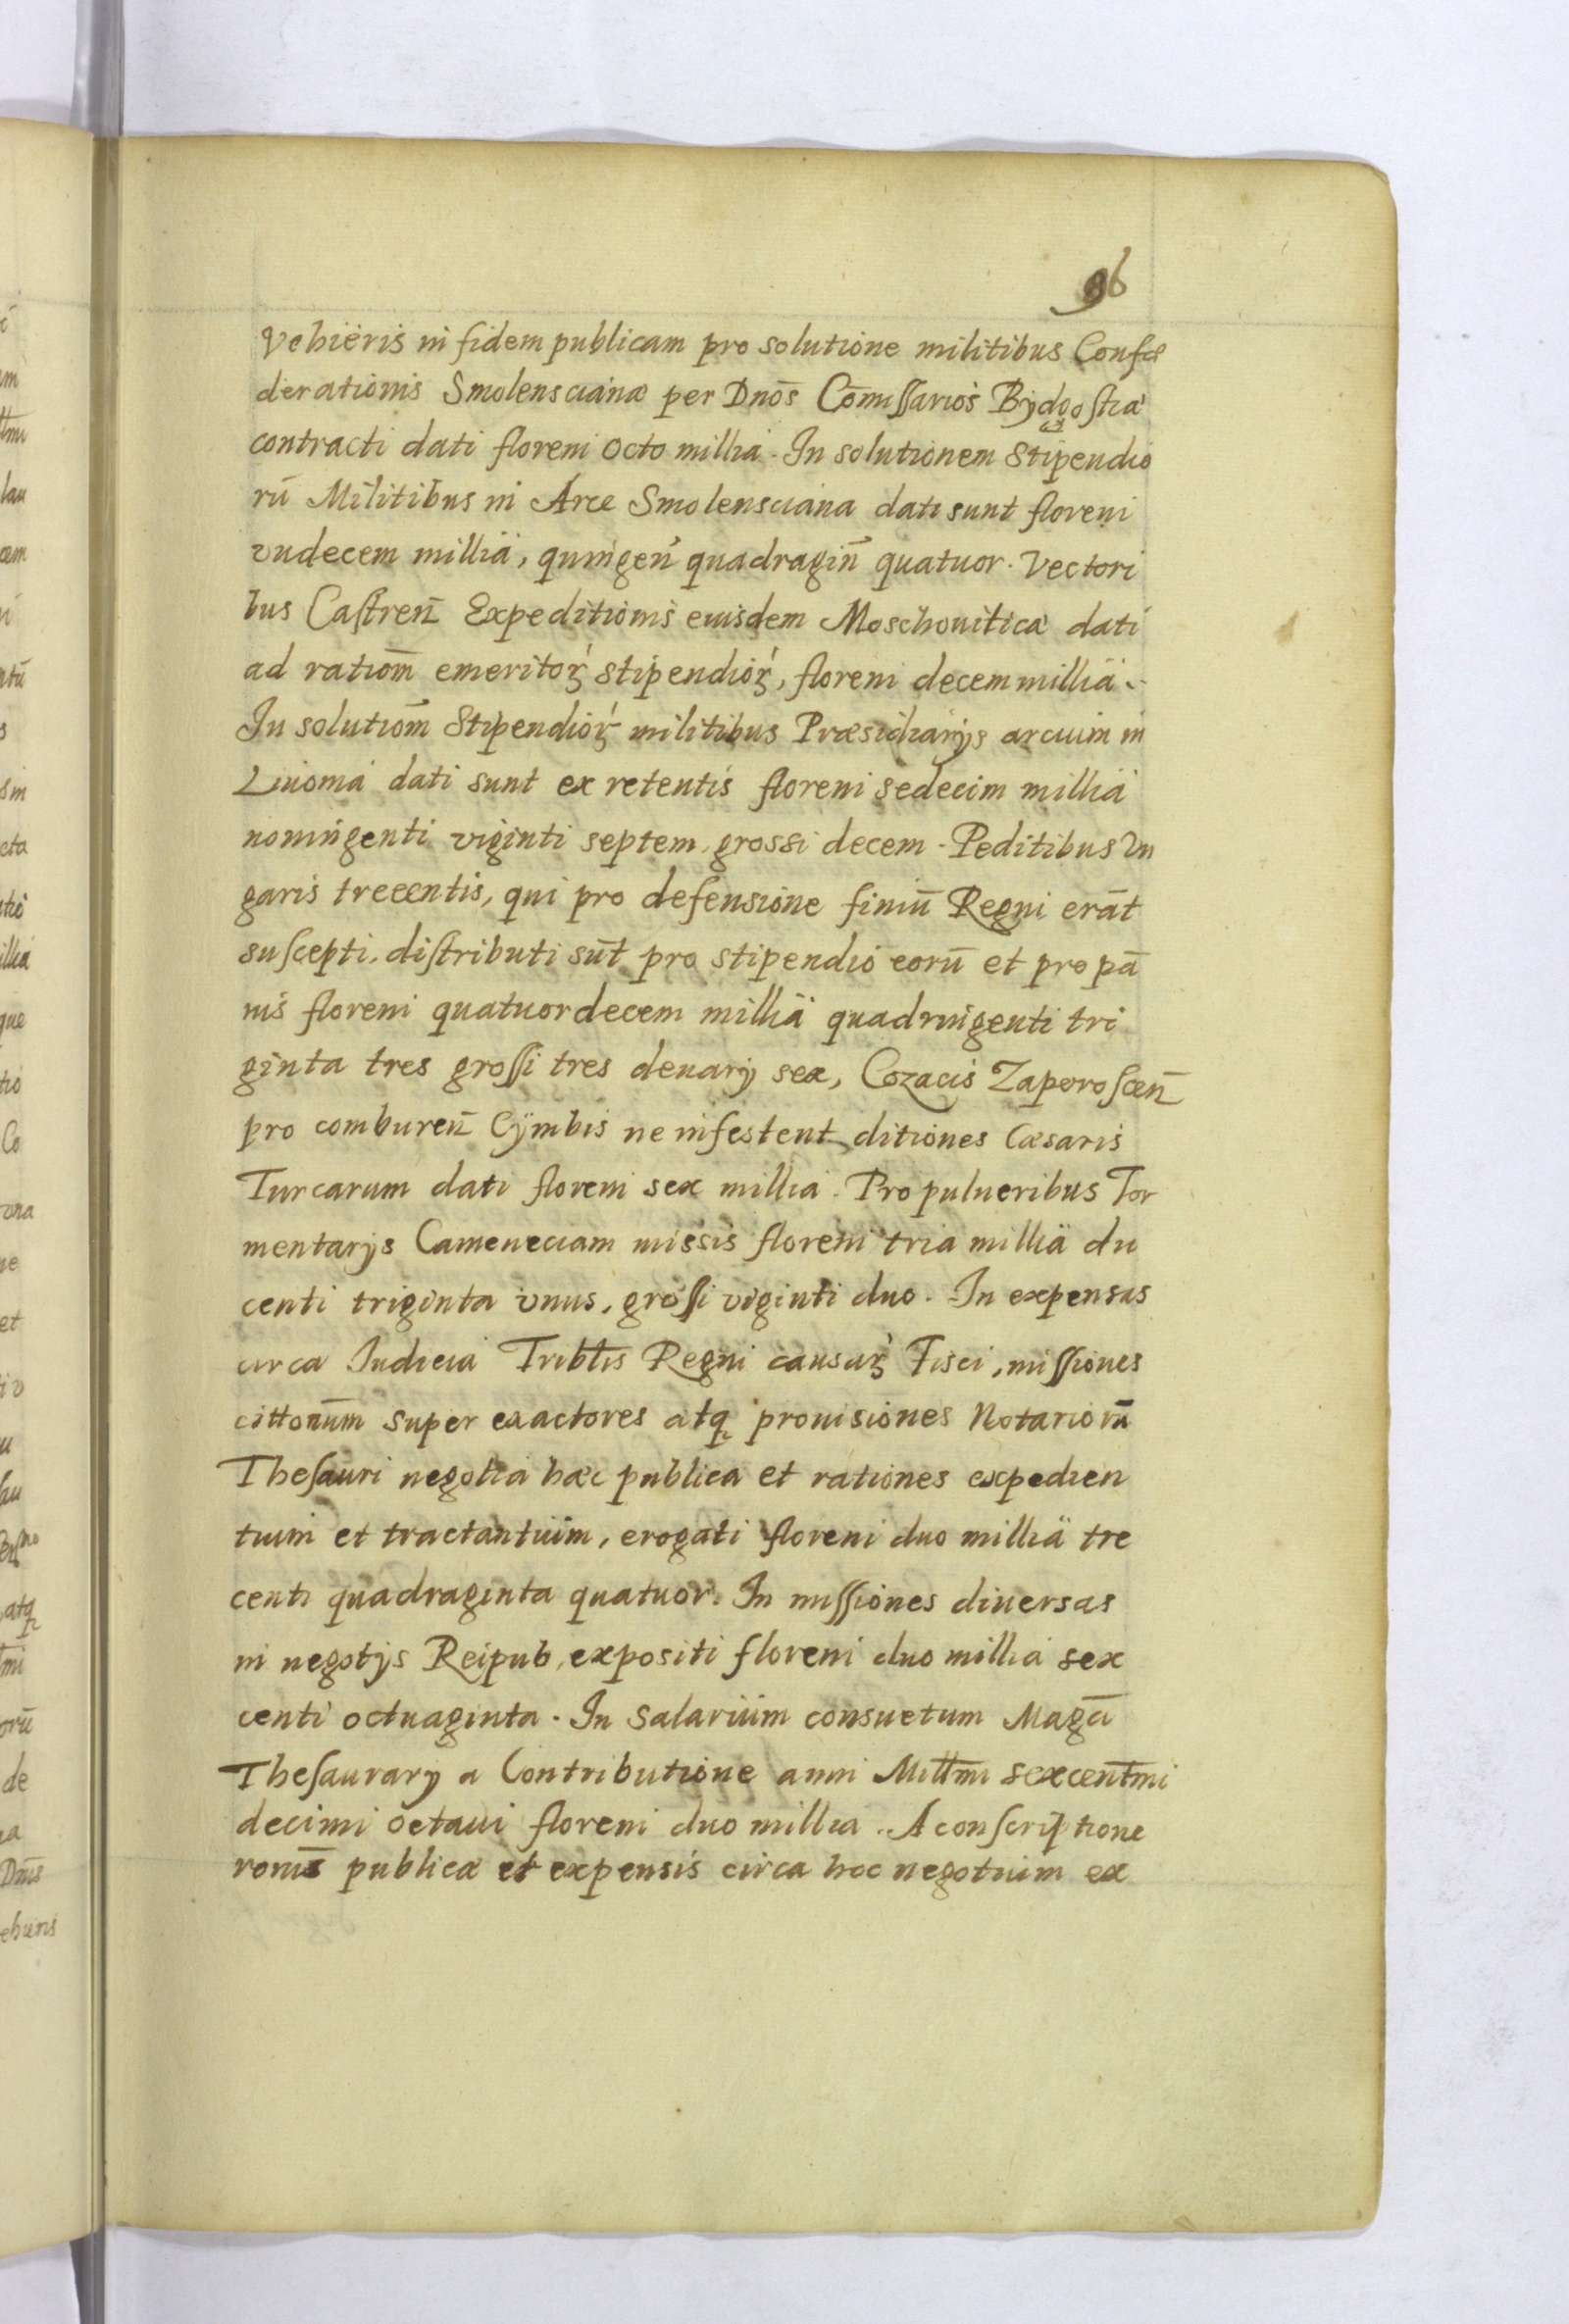 96
Vehieris in fidem publicam pro solutione militibus Confæ
derationis Smolenscianæ per Dnōs Cōmissarios Bydgostiæ
contracti dati floreni octo millia. In solutionem Stipendio
rū Militibus in Arce Smolensciana dati sunt floreni
vndecem millia, quingen̄ quadragin̄ quatuor. Vectori
bus Castren̄ Expeditionis eiusdem Moschouiticæ dati
ad ratiom̄ emeritoꝝ stipendioꝝ, floreni decem millia.
In solutiom̄ Stipendioꝝ militibus Præsidiarijs arcium in
Liuonia dati sunt ex retentis floreni sedecim millia
noningenti viginti septem, grossi decem. Peditibus Vn
garis trecentis, qui pro defensione finiū Regni erāt
suscepti, distributi sūt pro stipendio eorū et pro pā
nis floreni quatuordecem millia quadringenti tri
ginta tres grossi tres denarij sex, Cozacis Zaporoscen̄
pro comburen̄ Cymbis ne infestent ditiones Cæsaris
Turcarum dati floreni sex millia. Pro pulueribus Tor
mentarijs Cameneciam missis floreni tria millia du
centi triginta vnus, grossi viginti duo. In expensas
circa Iudicia Tribtis Regni causaꝝ Fisci, missiones
cittonum̄ super exactores atq̨ prouisiones Notariorū
Thesauri negotia hæc publica et rationes expedien
tium et tractantium, erogati floreni duo millia tre
centi quadraginta quatuor. In missiones diuersas
in negotijs Reipub, expositi floreni duo millia sex
centi octuaginta. In salarium consuetum Magcī
Thesaurarij a Contributione anni Mill̄mi sexcent̄mi
decimi octaui floreni duo millia. A conscriptione
ronis̄ publicæ et expensis circa hoc negotium ex